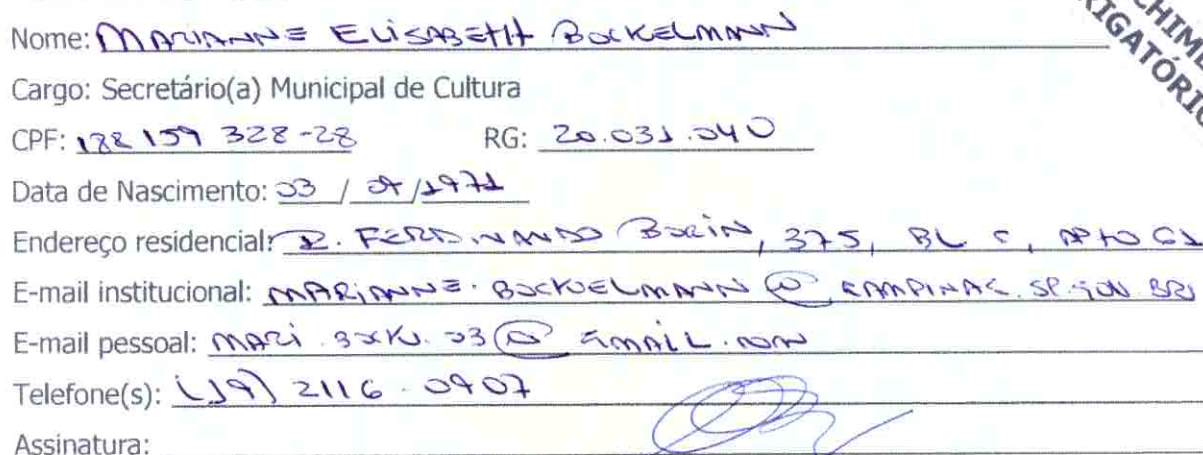 Nome: MARIANNE ELISABETH BOCKELMANN
Cargo: Secretário(a) Municipal de Cultura
CPF: 188 159 328-28 RG: 20.031.040
Data de Nascimento: 03 / 07/1971
Endereço residencial: R. FERDINANDO BORIN, 375, BL C, APTO 61
E-mail institucional: MARIANNE.BOCKELMANN@CAMPINAS.SP.GOV.BR
E-mail pessoal: MARI
Telefone(s): (19) 2116-0907
Assinatura: